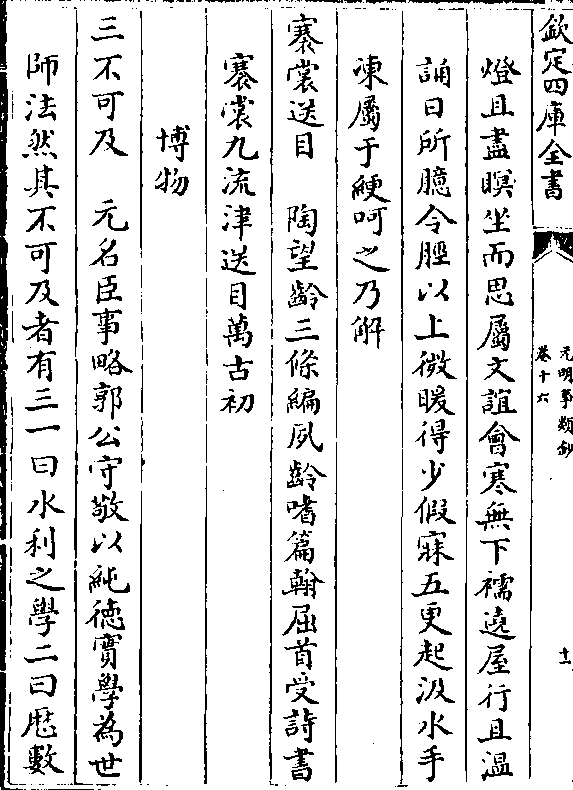 欽定四庫全書
元明事類鈔
卷十六
十一
燈且盡瞑坐而思屬文誼會寒無下襦遶屋行且溫
誦日所臆令脛以上微暖得少假寐五更起汲水手
凍屬于綆呵之乃解
褰裳送目　陶望齡三條編夙齡嗜篇翰屈首受詩書
褰裳九流津送目萬古初
博物
三不可及　元名臣事略郭公守敬以純德實學為世
師法然其不可及者有三一曰水利之學二曰厯數